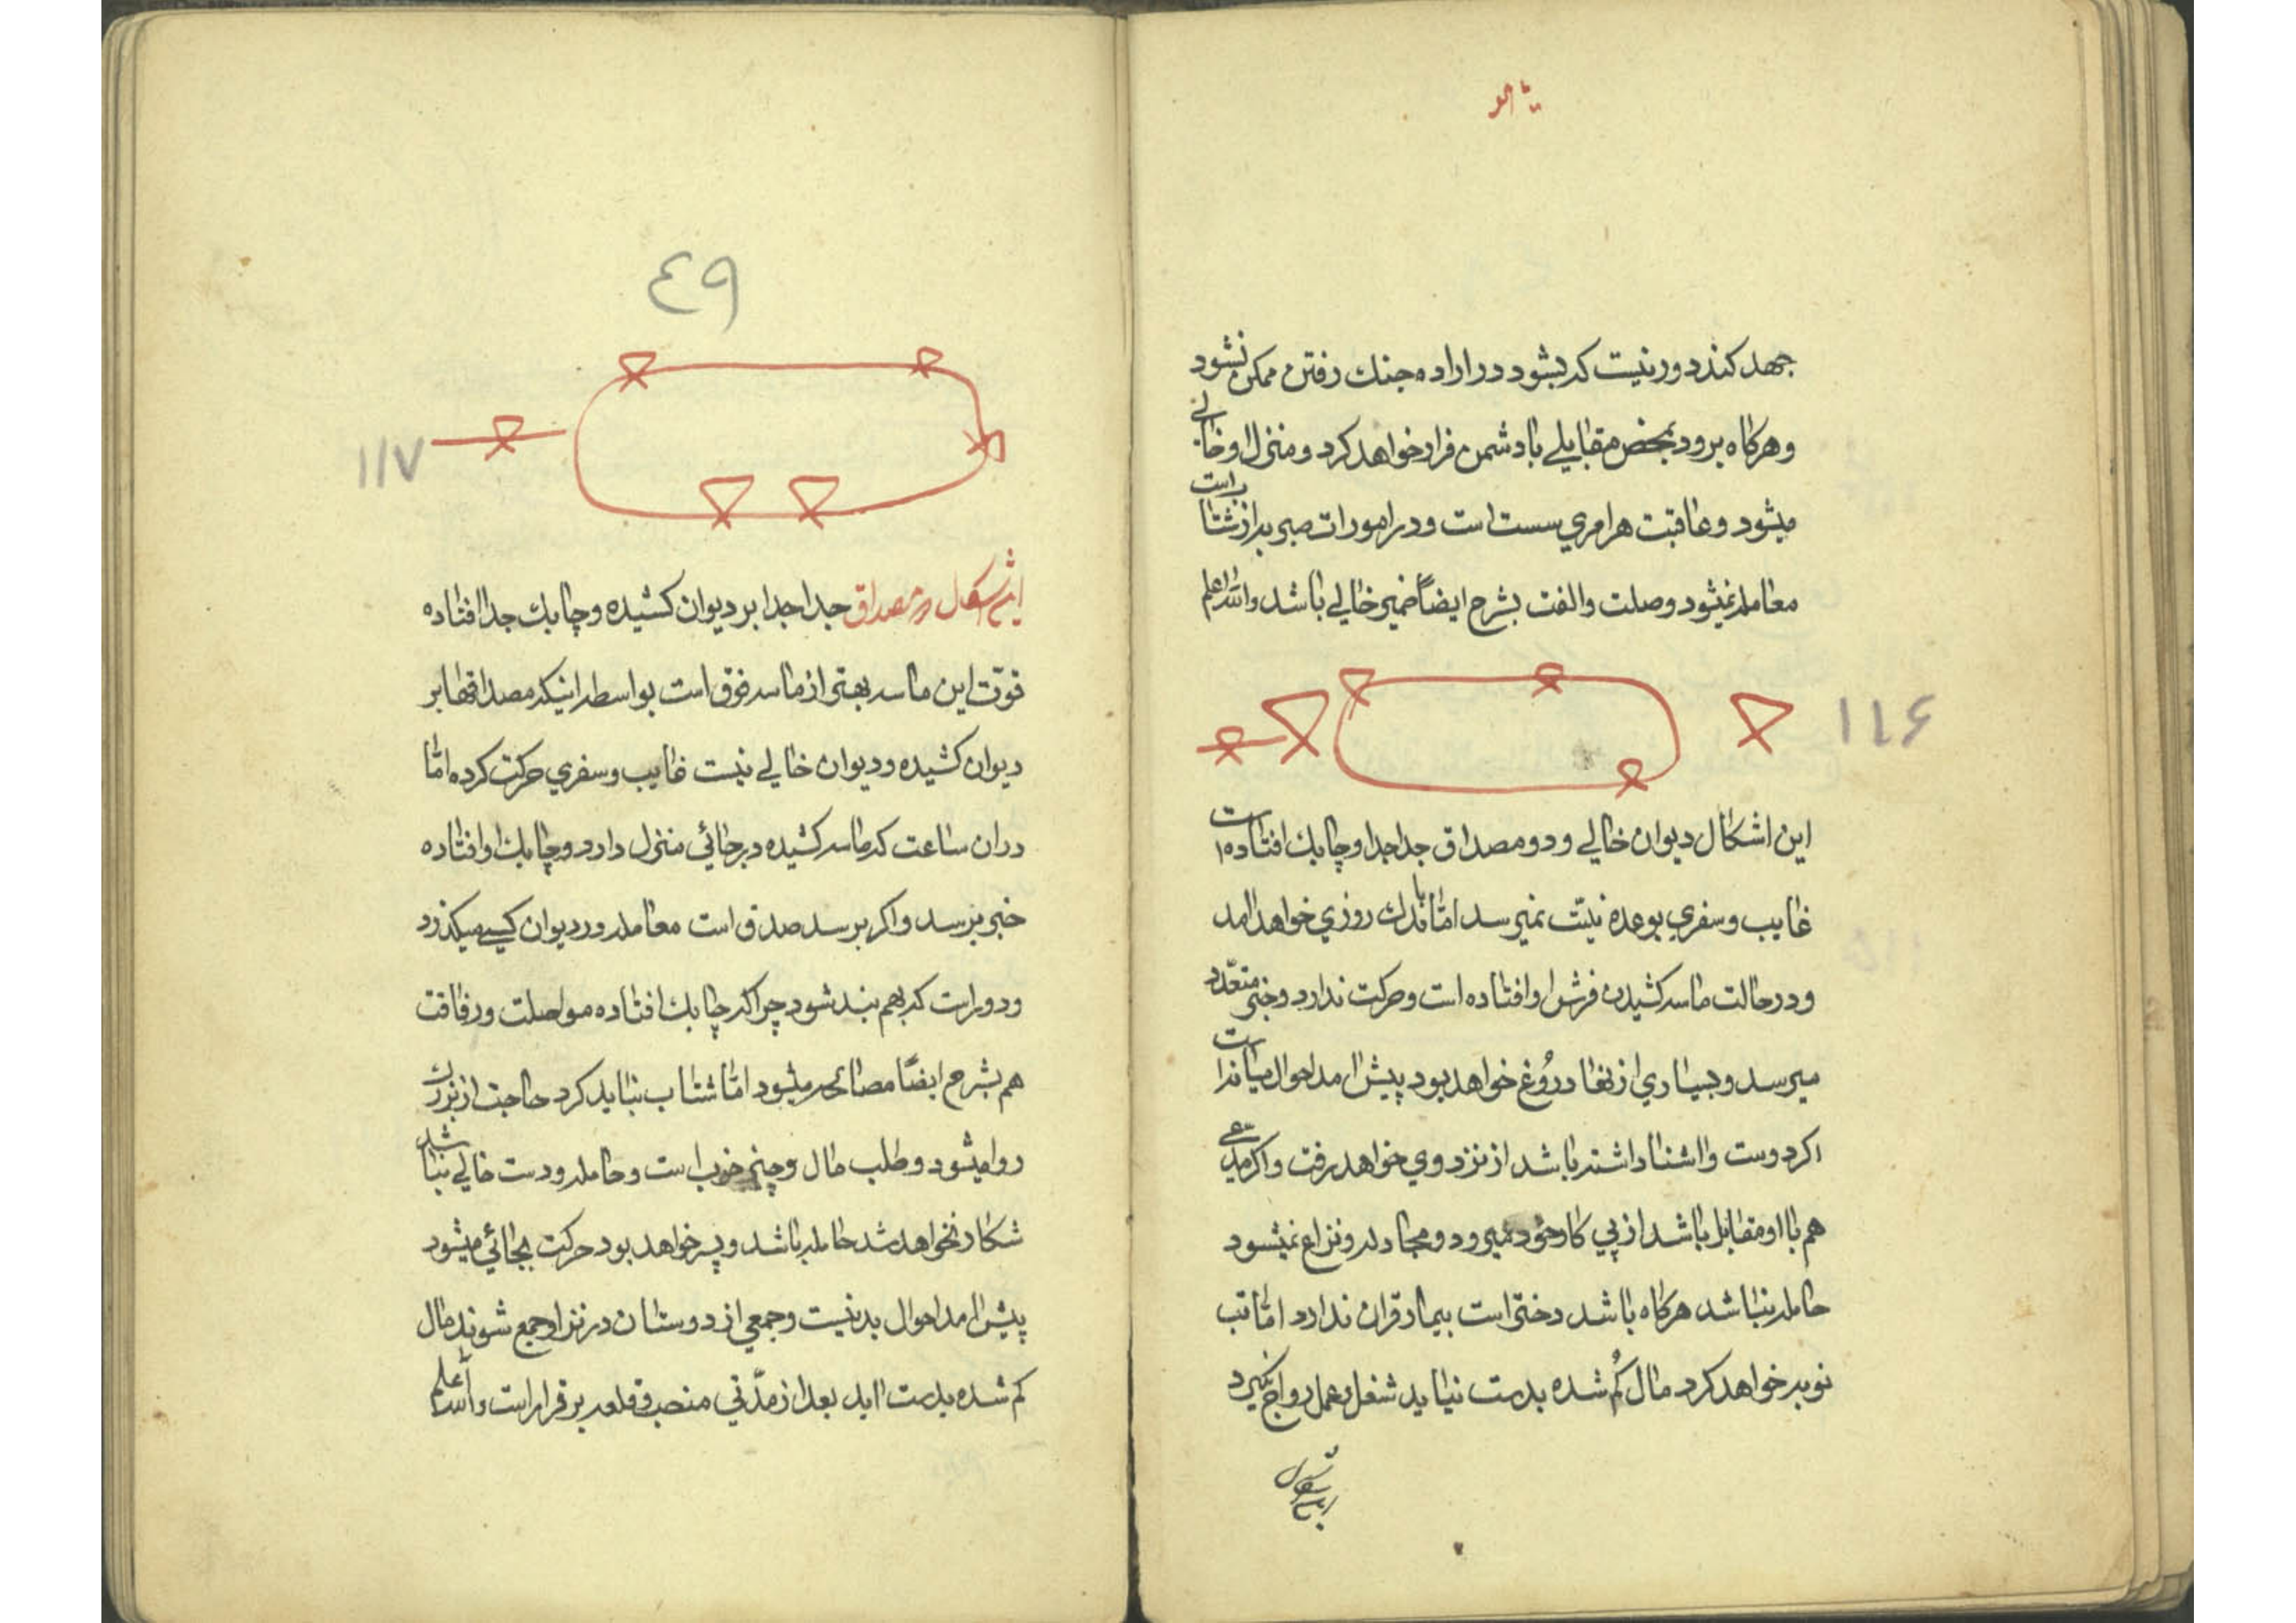 جهد کنند دور نیست که بشود در اراده جنك رفتن ممکن نشود
و هرکاه برود بمحض مقابلی با دشمن فرار خواهد کرد و منزل او خالی
میشود و عاقبت هر امری سست است و در امورات صبر به از شتاب است
معامله نمیشود وصلت و الفت بشرح ایضاً ضمیر خالی باشد والله اعلم
۱۱۶
این اشکال دیوان خالی و دو مصداق جدا جدا و چابك افتاده است
غایب و سفری بوعده نیت نمیرسد امّا باندك روزی خواهد امد
و در حالت ماسه کشیدن فرش او افتاده است و حرکت ندارد و خبر متعدّد
میرسد و بسیاری از انها دروُغ خواهد بود پیش امد احوال میانه است
اکر دوست و اشنا داشته باشد از نزد وی خواهد رفت و اکر مدعی
هم با او مقابل باشد از پی کار خود میرود و مجادله و نزاع نمیشود
حامله نباشد هرکاه باشد دختر است بیمار قران ندارد امّا تب
نوبه خواهد کرد مال کُم شده بدست نیاید شغل و عمل رواج نکیرد
این اشکال
٤٩
۱۱۷
این اشکال مصداق جدا جدا بر دیوان کشیده و چابك جدا افتاده
قوّت این ماسه بهتر از ماسه فوق است بواسطه اینکه مصداقها بر
دیوان کشیده و دیوان خالی نیست غایب و سفری حرکت کرده امّا
در ان ساعت که ماسه کشیده در جائی منزل دارد و چابك او افتاده
خبر برسد و اکر برسد صدق است معامله در دیوان کسی میکذرد
و دور است که بهم بند شود چرا که چابك افتاده مواصلت و رفاقت
هم بشرح ایضاً مصالحه میشود امّا شتاب نباید کرد حاجت از بزرك
روا میشود و طلب مال و چیز خوب است و حامله و دست خالی نباشد
شکار نخواهد شد حامله باشد و پسر خواهد بود حرکت بجائی میشود
پیش امد احوال بد نیست و جمعی از دوستان در نزد او جمع شوند مال
کم شده بدست اید بعد از مدّتی منصب و قلعه بر قرار است والله اعلم